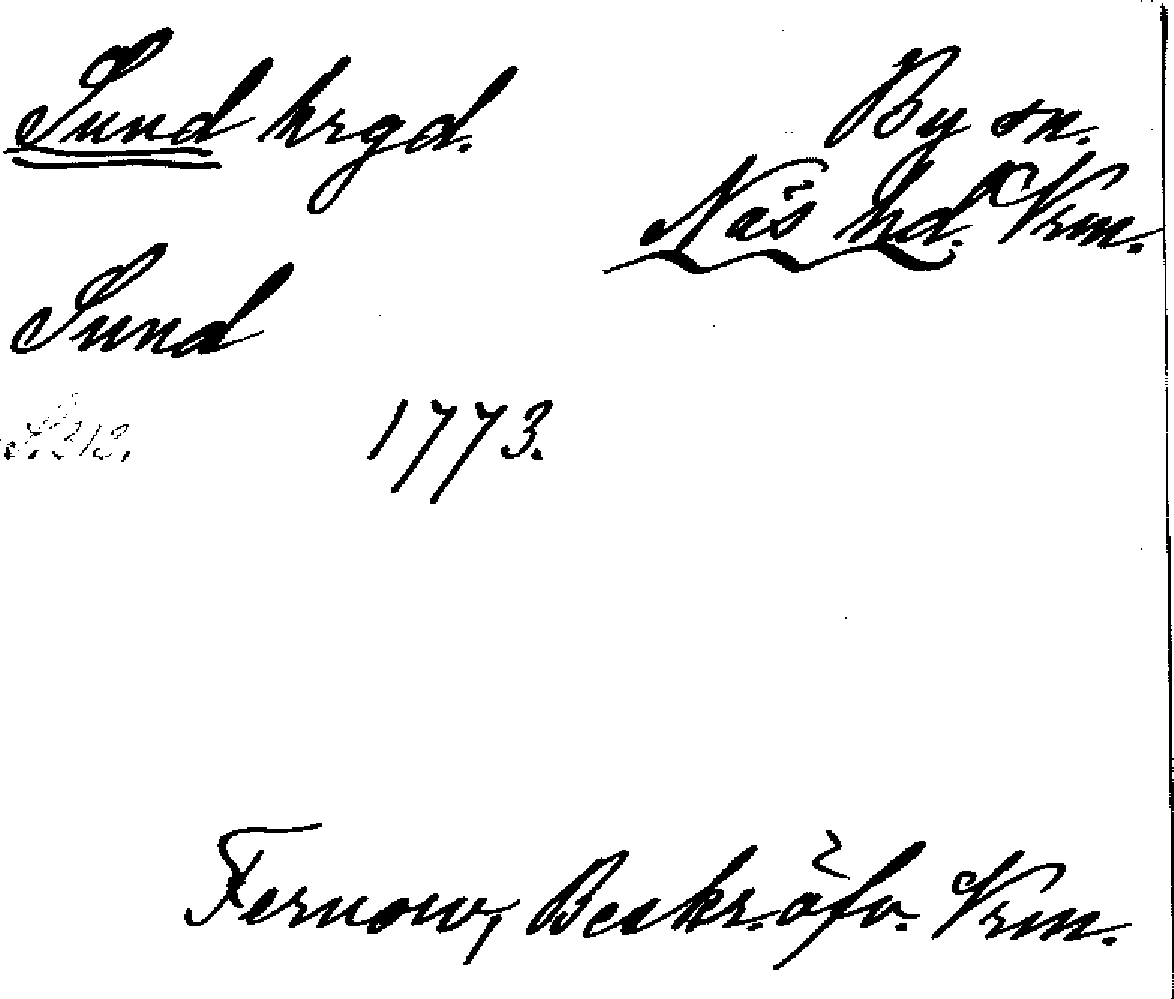 Sund hrgd.
By sn.
Näs hd. Vrm.
Sund
S. 213. 1773.
Fernow, Beskr. öfv. Vrm.